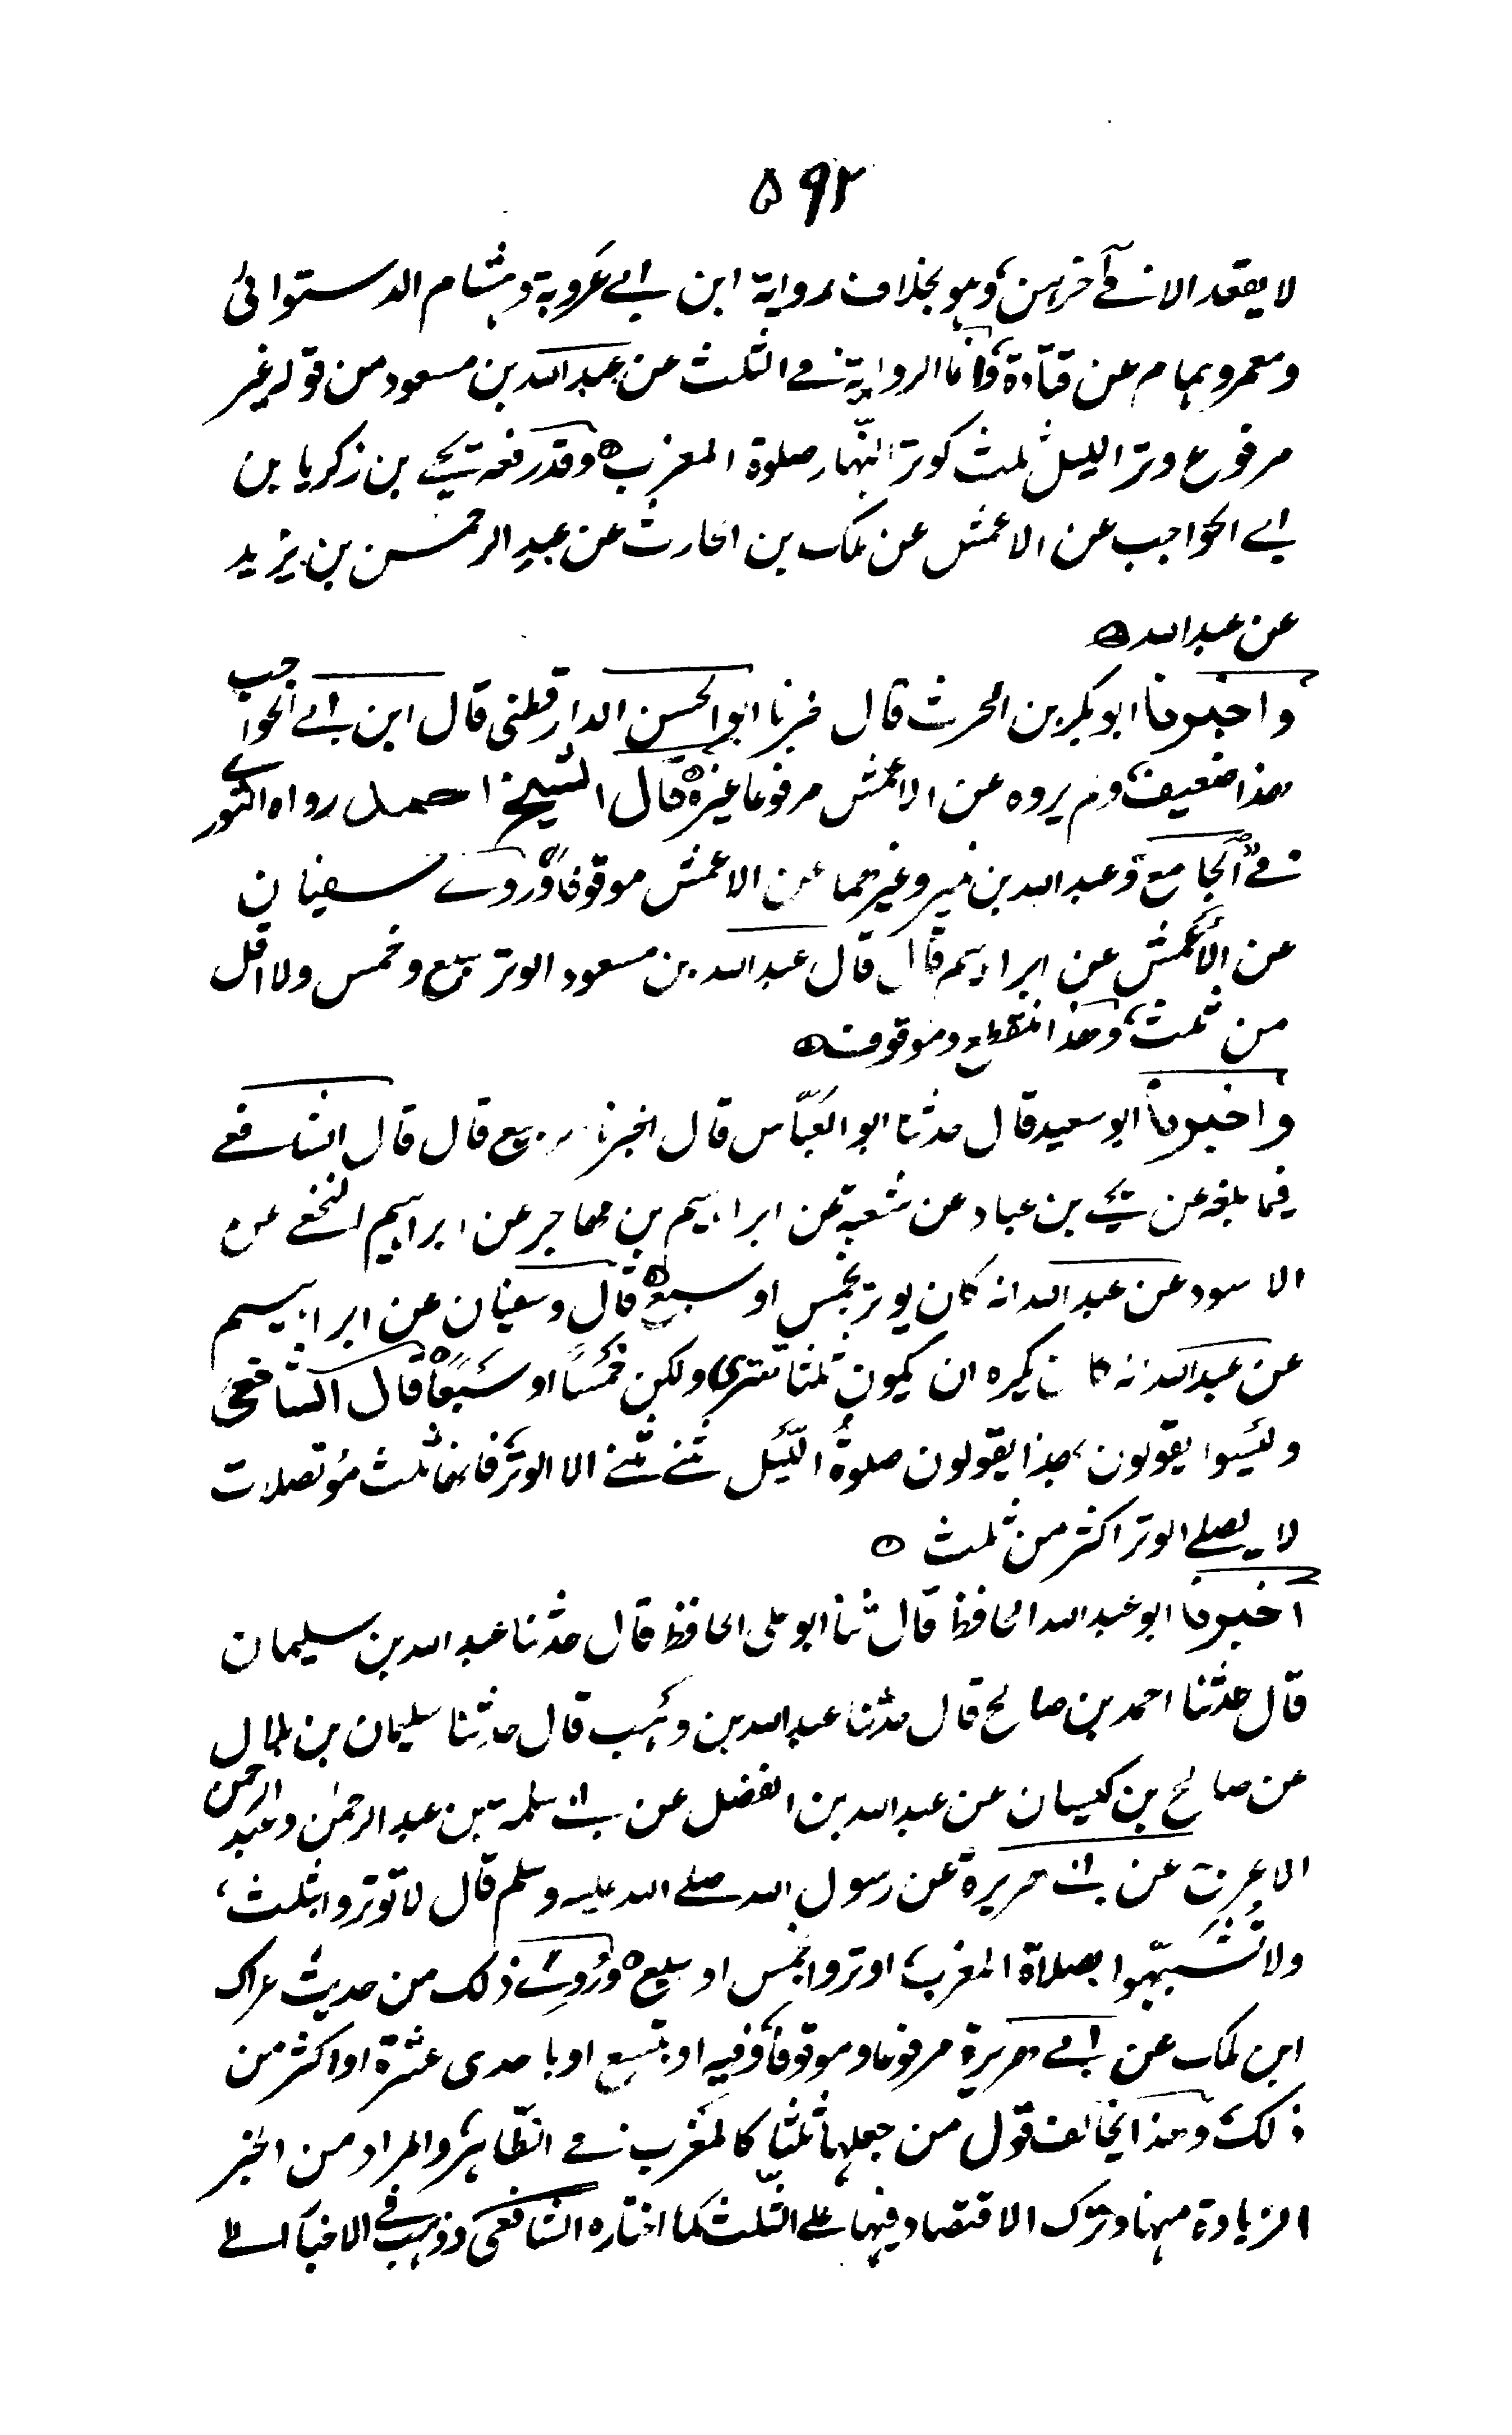 ۵۹۲
لا يقعد الا في آخرهن، وهو بخلاف رواية ابن ابي عروبة وهشام الدستوائي
ومعمر وهمام عن قتادة، وانما الرواية في الثلث عن عبد الله بن مسعود من قوله غير
مرفوع وتر الليل ثلث كوتر النهار صلوة المغرب ٥ وقد رفعه يحيى بن زكريا بن
ابي الحواجب عن الاعمش عن ملك بن الحارث عن عبد الرحمن بن يزيد
عن عبد الله ٥
واخبرنا ابو بكر بن الحرث قال خبرنا ابو الحسن الدارقطني قال ابن ابي الحواجب
هذا ضعيف، ولم يروه عن الاعمش مرفوعا غيره ٥ قال الشيخ احمد رواه الثوري
في الجامع، وعبد الله بن نمير وغيرهما عن الاعمش موقوفا، وروى سفيان
عن الأعمش عن ابراهيم قال قال عبد الله بن مسعود الوتر سبع وخمس ولا اقل
من ثلث، وهذا منقطع وموقوف ٥
واخبرنا ابو سعيد قال حدثنا ابو العبّاس قال اخبرنا ربيع قال قال الشافعي
فيما بلغه عن يحيى بن عباد عن شعبة عن ابراهيم بن مهاجر عن ابراهيم النخعي عن
الاسود عن عبد الله انه كان يوتر بخمس او سبع ٥ قال وسفيان عن ابراهيم
عن عبد الله انه كان يكره ان يكون ثلثا تترى ولكن خمسًا او سبعًا ٥ قال الشافعي
وليسوا يقولون بهذا يقولون صلوةُ اللّيل مثنى مثنى الا الوتر، فانها ثلث متصلات
لا يصلي الوتر اكثر من ثلث ٥
اخبرنا ابو عبد الله الحافظ قال ثنا ابو علي الحافظ قال حدثنا عبد الله بن سليمان
قال حدثنا احمد بن صالح قال حدثنا عبد الله بن وهب قال حدثنا سليمان بن بلال
عن صالح بن كيسان عن عبد الله بن الفضل عن ابي سلمة بن عبد الرحمٰن وعبد الرحمن
الاعرج عن ابي هريرة عن رسول الله صلى الله عليه وسلم قال لا توتروا بثلث،
ولا تُشبّهوا بصلاة المغرب، اوتروا بخمس او بسبع ٥ ورُوي ذلك من حديث عراك
ابن ملك عن ابي هريرة مرفوعا وموقوفا، وفيه او بتسع او باحدى عشرة او اكثر من
ذلك، وهذا يخالف قول من جعلها ثلثا كالمغرب في الظاهر، والمراد من الخبر
الزيادة فيها وترك الاقتصاد فيها على الثلث كما اختاره الشافعي وذهب في الاخبار الى